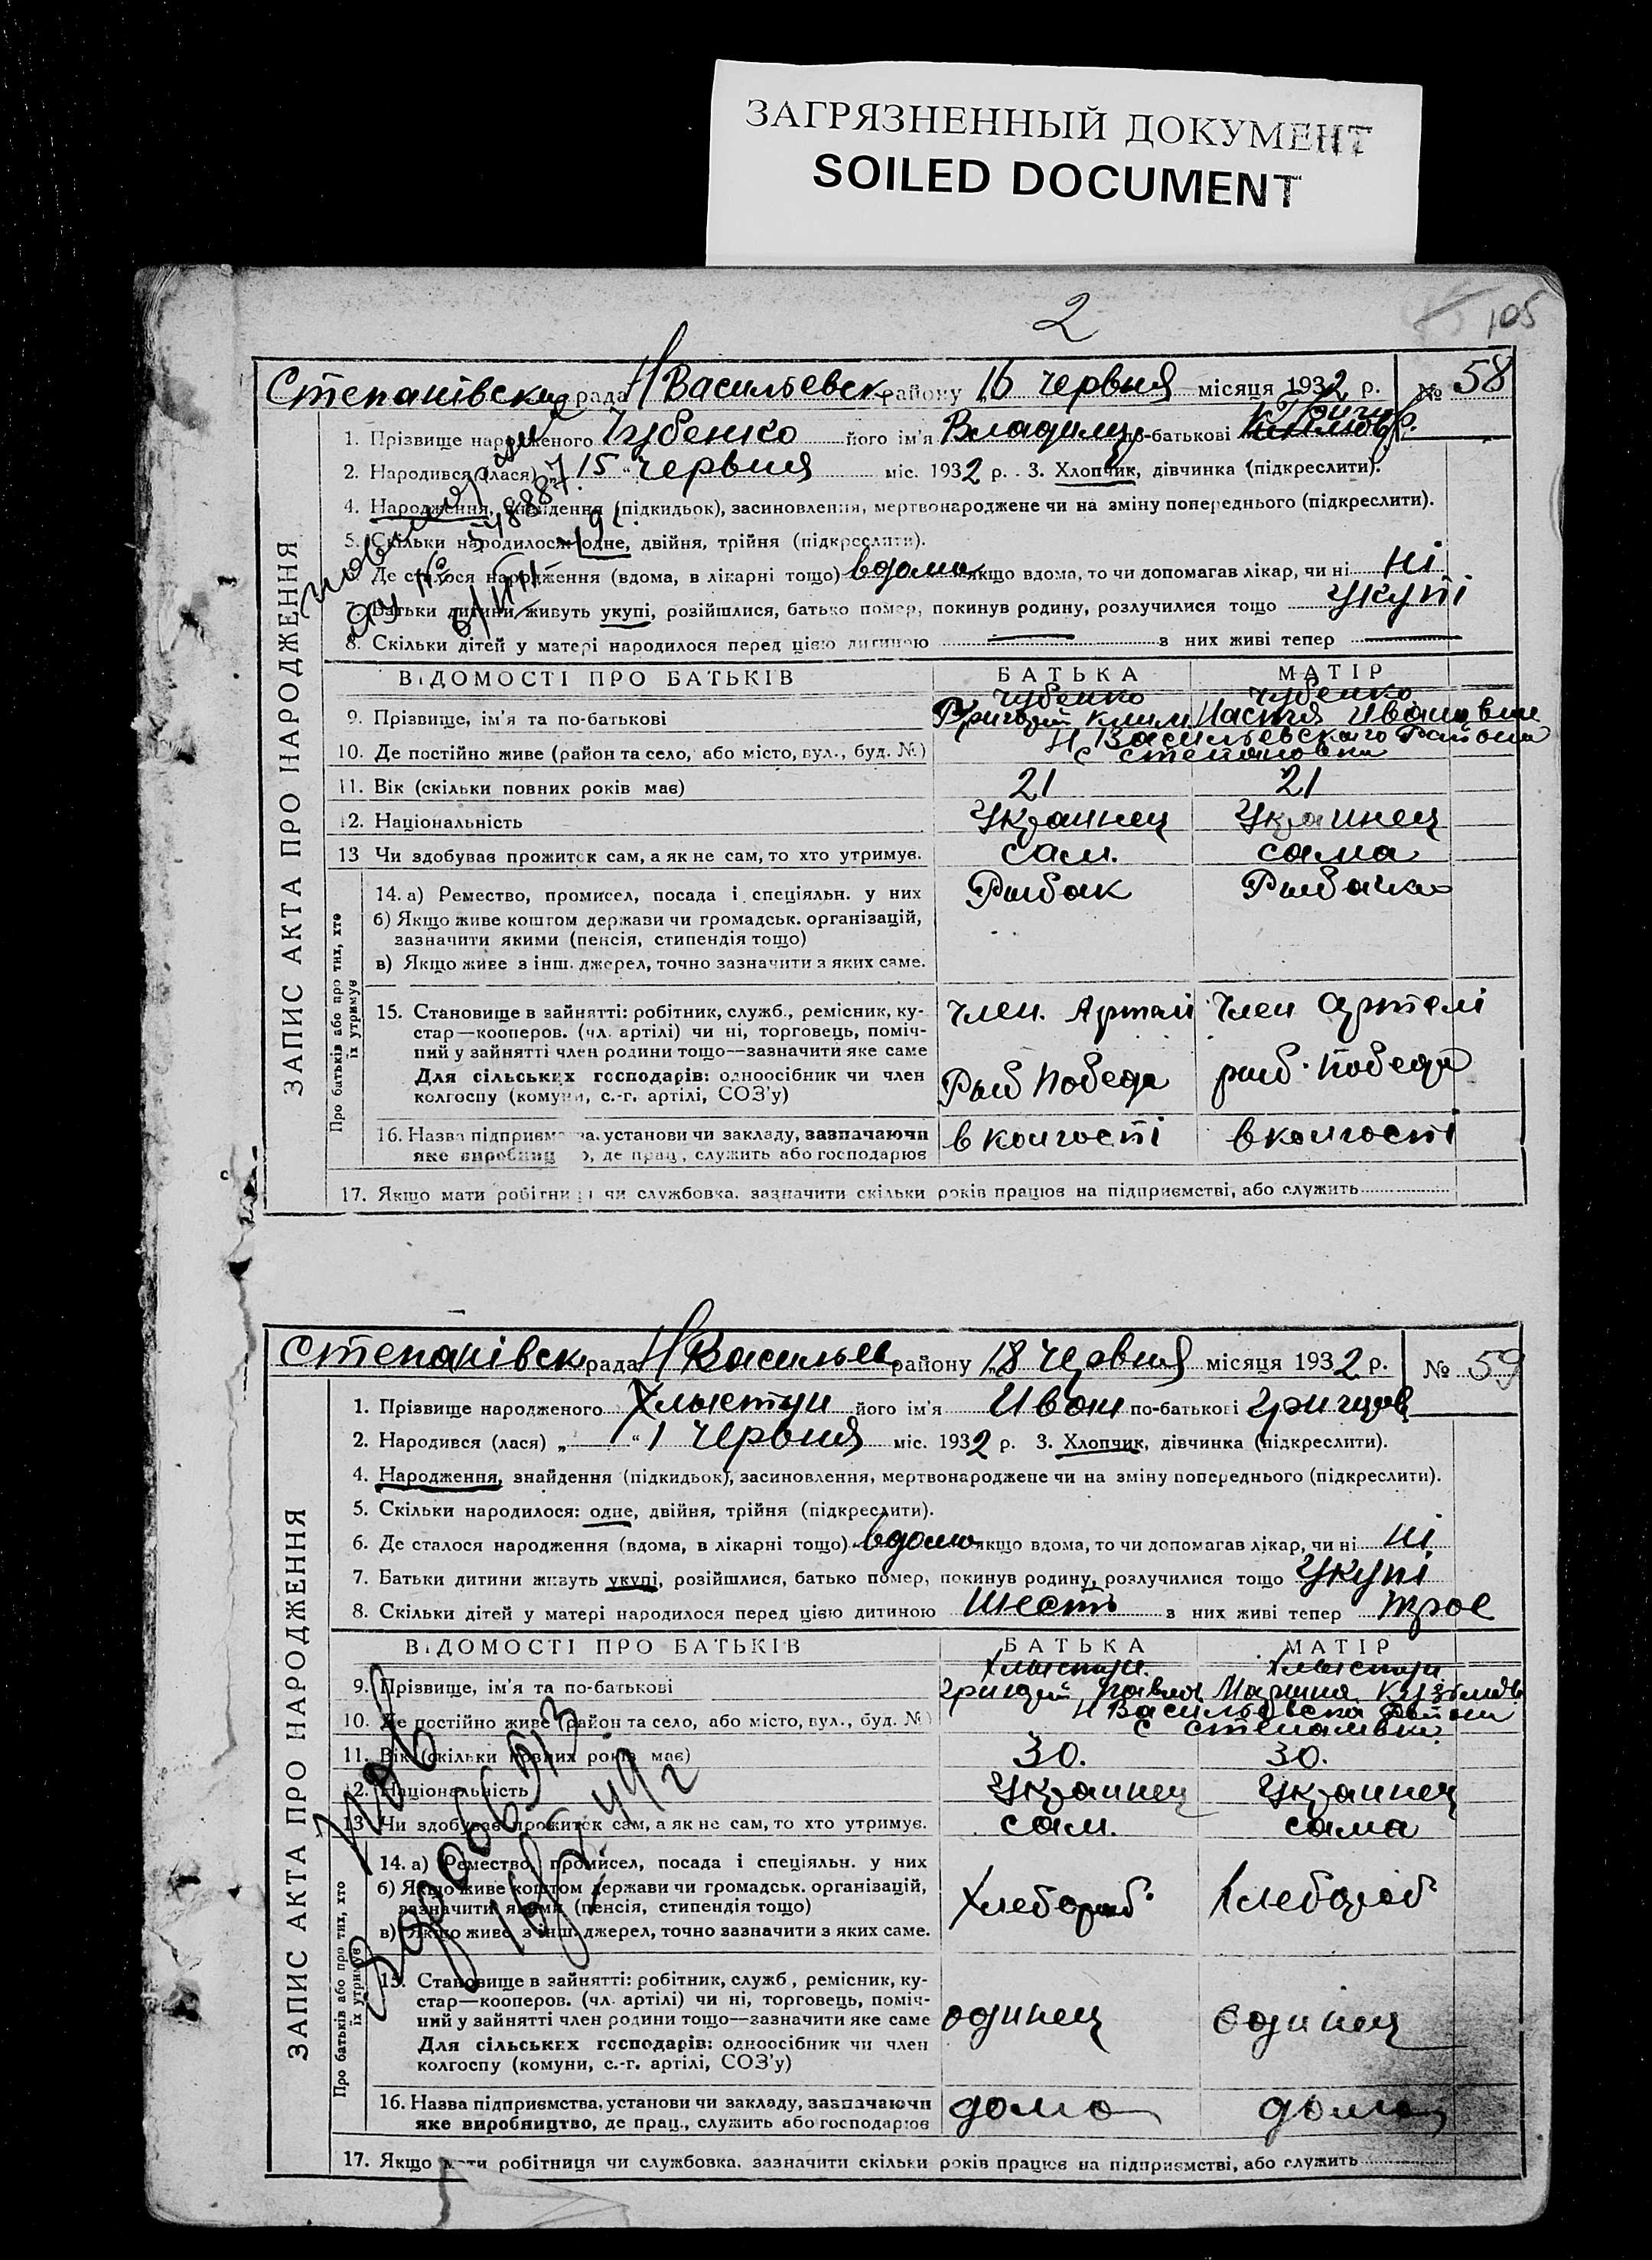 ЗАГРЯЗНЕННЫЙ ДОКУМЕНТ
SOILED DOCUMENT
2
105
Степанівська рада Н Васильевск району 16 червня місяця 1932 р. № 58
ЗАПИС АКТА ПРО НАРОДЖЕННЯ
1. Прізвище народженого Чубенко його ім'я Владимир по-батькові
2. Народився (лася) „15“ червня міс. 1932 р. 3. Хлопчик, дівчинка (підкреслити).
4. Народження, знайдення (підкидьок), засиновлення, мертвонароджене чи на зміну попереднього (підкреслити).
5. Скільки народилося: одне, двійня, трійня (підкреслити).
6. Де сталося народження (вдома, в лікарні тощо) вдома якщо вдома, то чи допомагав лікар, чи ні ні
7. Батьки дитини живуть укупі, розійшлися, батько помер, покинув родину, розлучилися тощо укупі
8. Скільки дітей у матері народилося перед цією дитиною — з них живі тепер —
ВІДОМОСТІ ПРО БАТЬКІВ БАТЬКА МАТІР
Чубенко Чубенко
9. Прізвище, ім'я та по-батькові Григорий Клим Настя Ивановна
Н Васильевского Района
10. Де постійно живе (район та село, або місто, вул., буд. №) с Степановка
11. Вік (скільки повних років має) 21 21
12. Національність Украинец Украинец
13 Чи здобуває прожиток сам, а як не сам, то хто утримує. сам. сама
Про батьків або про тих, хто їх утримує
14. а) Ремество, промисел, посада і спеціяльн. у них Рыбак Рыбачка
б) Якщо живе коштом держави чи громадськ. організацій,
зазначити якими (пенсія, стипендія тощо)
в) Якщо живе з інш. джерел, точно зазначити з яких саме.
15. Становище в зайнятті: робітник, служб., ремісник, ку- член. Артелі член артелі
стар—кооперов. (чл. артілі) чи ні, торговець, поміч-
ний у зайнятті член родини тощо—зазначити яке саме
Для сільських господарів: одноосібник чи член Рыб Победа рыб. Победа
колгоспу (комуни, с.-г. артілі, СОЗ'у)
16. Назва підприємства, установи чи закладу, зазначаючи в колгоспі в колгоспі
яке виробництво, де прац., служить або господарює
17. Якщо мати робітниця чи службовка. зазначити скільки років працює на підприємстві, або служить
Степанівск рада Н Васильев району 18 червня місяця 1932 р. № 59
ЗАПИС АКТА ПРО НАРОДЖЕННЯ
1. Прізвище народженого Хлыстун його ім'я Иван по-батькові Григоров
2. Народився (лася) „—“ 1 червня міс. 1932 р. 3. Хлопчик, дівчинка (підкреслити).
4. Народження, знайдення (підкидьок), засиновлення, мертвонароджене чи на зміну попереднього (підкреслити).
5. Скільки народилося: одне, двійня, трійня (підкреслити).
6. Де сталося народження (вдома, в лікарні тощо) вдома якщо вдома, то чи допомагав лікар, чи ні ні
7. Батьки дитини живуть укупі, розійшлися, батько помер, покинув родину, розлучилися тощо укупі
8. Скільки дітей у матері народилося перед цією дитиною шесть з них живі тепер трое
ВІДОМОСТІ ПРО БАТЬКІВ БАТЬКА МАТІР
Хлыстун. Хлыстун
9. Прізвище, ім'я та по-батькові Григорий Павлов Марина Кузьмов
Н Васильевска Района
10. Де постійно живе (район та село, або місто, вул., буд. №) с степанивки
11. Вік (скільки повних років має) 30. 30.
12. Національність Украинец Украинец
13 Чи здобуває прожиток сам, а як не сам, то хто утримує. сам. сама
Про батьків або про тих, хто їх утримує
14. а) Ремество, промисел, посада і спеціяльн. у них
б) Якщо живе коштом держави чи громадськ. організацій, Хлебороб Хлебороб
зазначити якими (пенсія, стипендія тощо)
в) Якщо живе з інш. джерел, точно зазначити з яких саме.
15. Становище в зайнятті: робітник, служб, ремісник, ку-
стар—кооперов. (чл. артілі) чи ні, торговець, поміч-
ний у зайнятті член родини тощо—зазначити яке саме одинец одинец
Для сільських господарів: одноосібник чи член
колгоспу (комуни, с.-г. артілі, СОЗ'у)
16. Назва підприємства, установи чи закладу, зазначаючи дома дома
яке виробництво, де прац., служить або господарює
17. Якщо мати робітниця чи службовка. зазначити скільки років працює на підприємстві, або служить